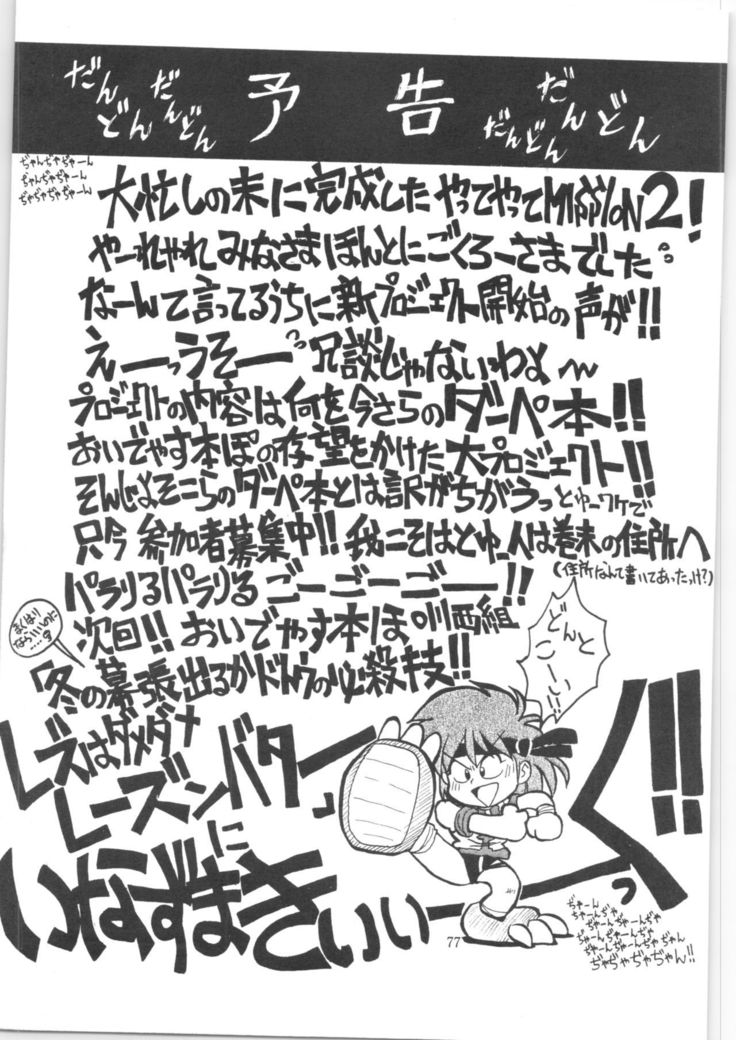 だんどんだんどん 予告 だんどんだんどん
ぢゃんぢゃぢゃーん
ちゃんぢゃぢゃーん
ぢゃぢゃぢゃぢゃーん
大忙しの末に完成した やってやってMISSION2!
やーれやれ みなさまほんとにごくろーさまでした
なーんて言ってるうちに新プロジェクト開始の声が!!
えーーっうそーーっ 冗談じゃないわよ〜
プロジェクトの内容は何を今さらのダーペ本!!
おいでやす本ぽの存望をかけた大プロジェクト!!
そんじょそこらのダーペ本とは訳がちがうっとゆーワケで
只今 参加者募集中!! 我こそはとゆー人は巻末の住所へ
(住所なんて書いてあったっけ?)
パラりるパラりる ごーごーごー!!
次回!! おいでやす本ぽ 川西組
まくはりならいいのに……
冬の幕張出るかドトウの必殺技!!
どんとこーい!!
レズはダメダメ
レーズンバターに
いなずまきぃぃーーっく!!
#1
77
ぢゃーん
ちゃーんぢゃ
ぢゃーんぢゃーんぢゃ
ぢゃーんぢゃーんぢゃ
ぢゃーんぢゃーんぢゃぢゃん
ぢゃぢゃぢゃぢゃん!!